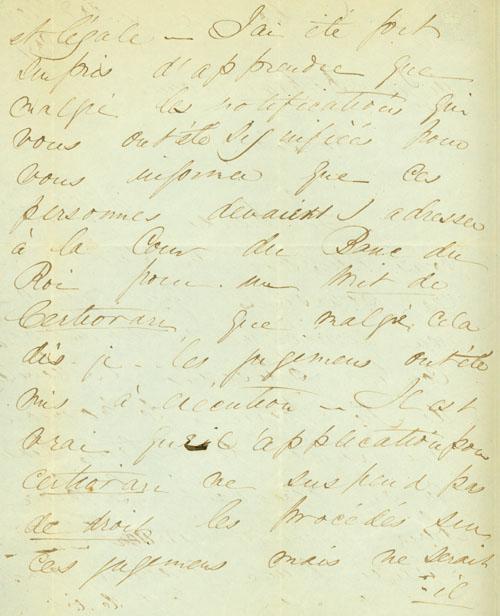 est légale — J'ai été fort
surpris d'apprendre que
malgré les notifications qui
vous ont été signifiées pour
vous informer que ces
personnes devaient s'adresser
à la Cour du Banc du
Roi pour un Writ de
Certiorari, que malgré cela
dis-je les jugemens ont été
mis à exécution — Il est
vrai que l'application pour
certiorari ne suspend pas
de droit les procédés sur
ces jugemens mais ne serait
-il